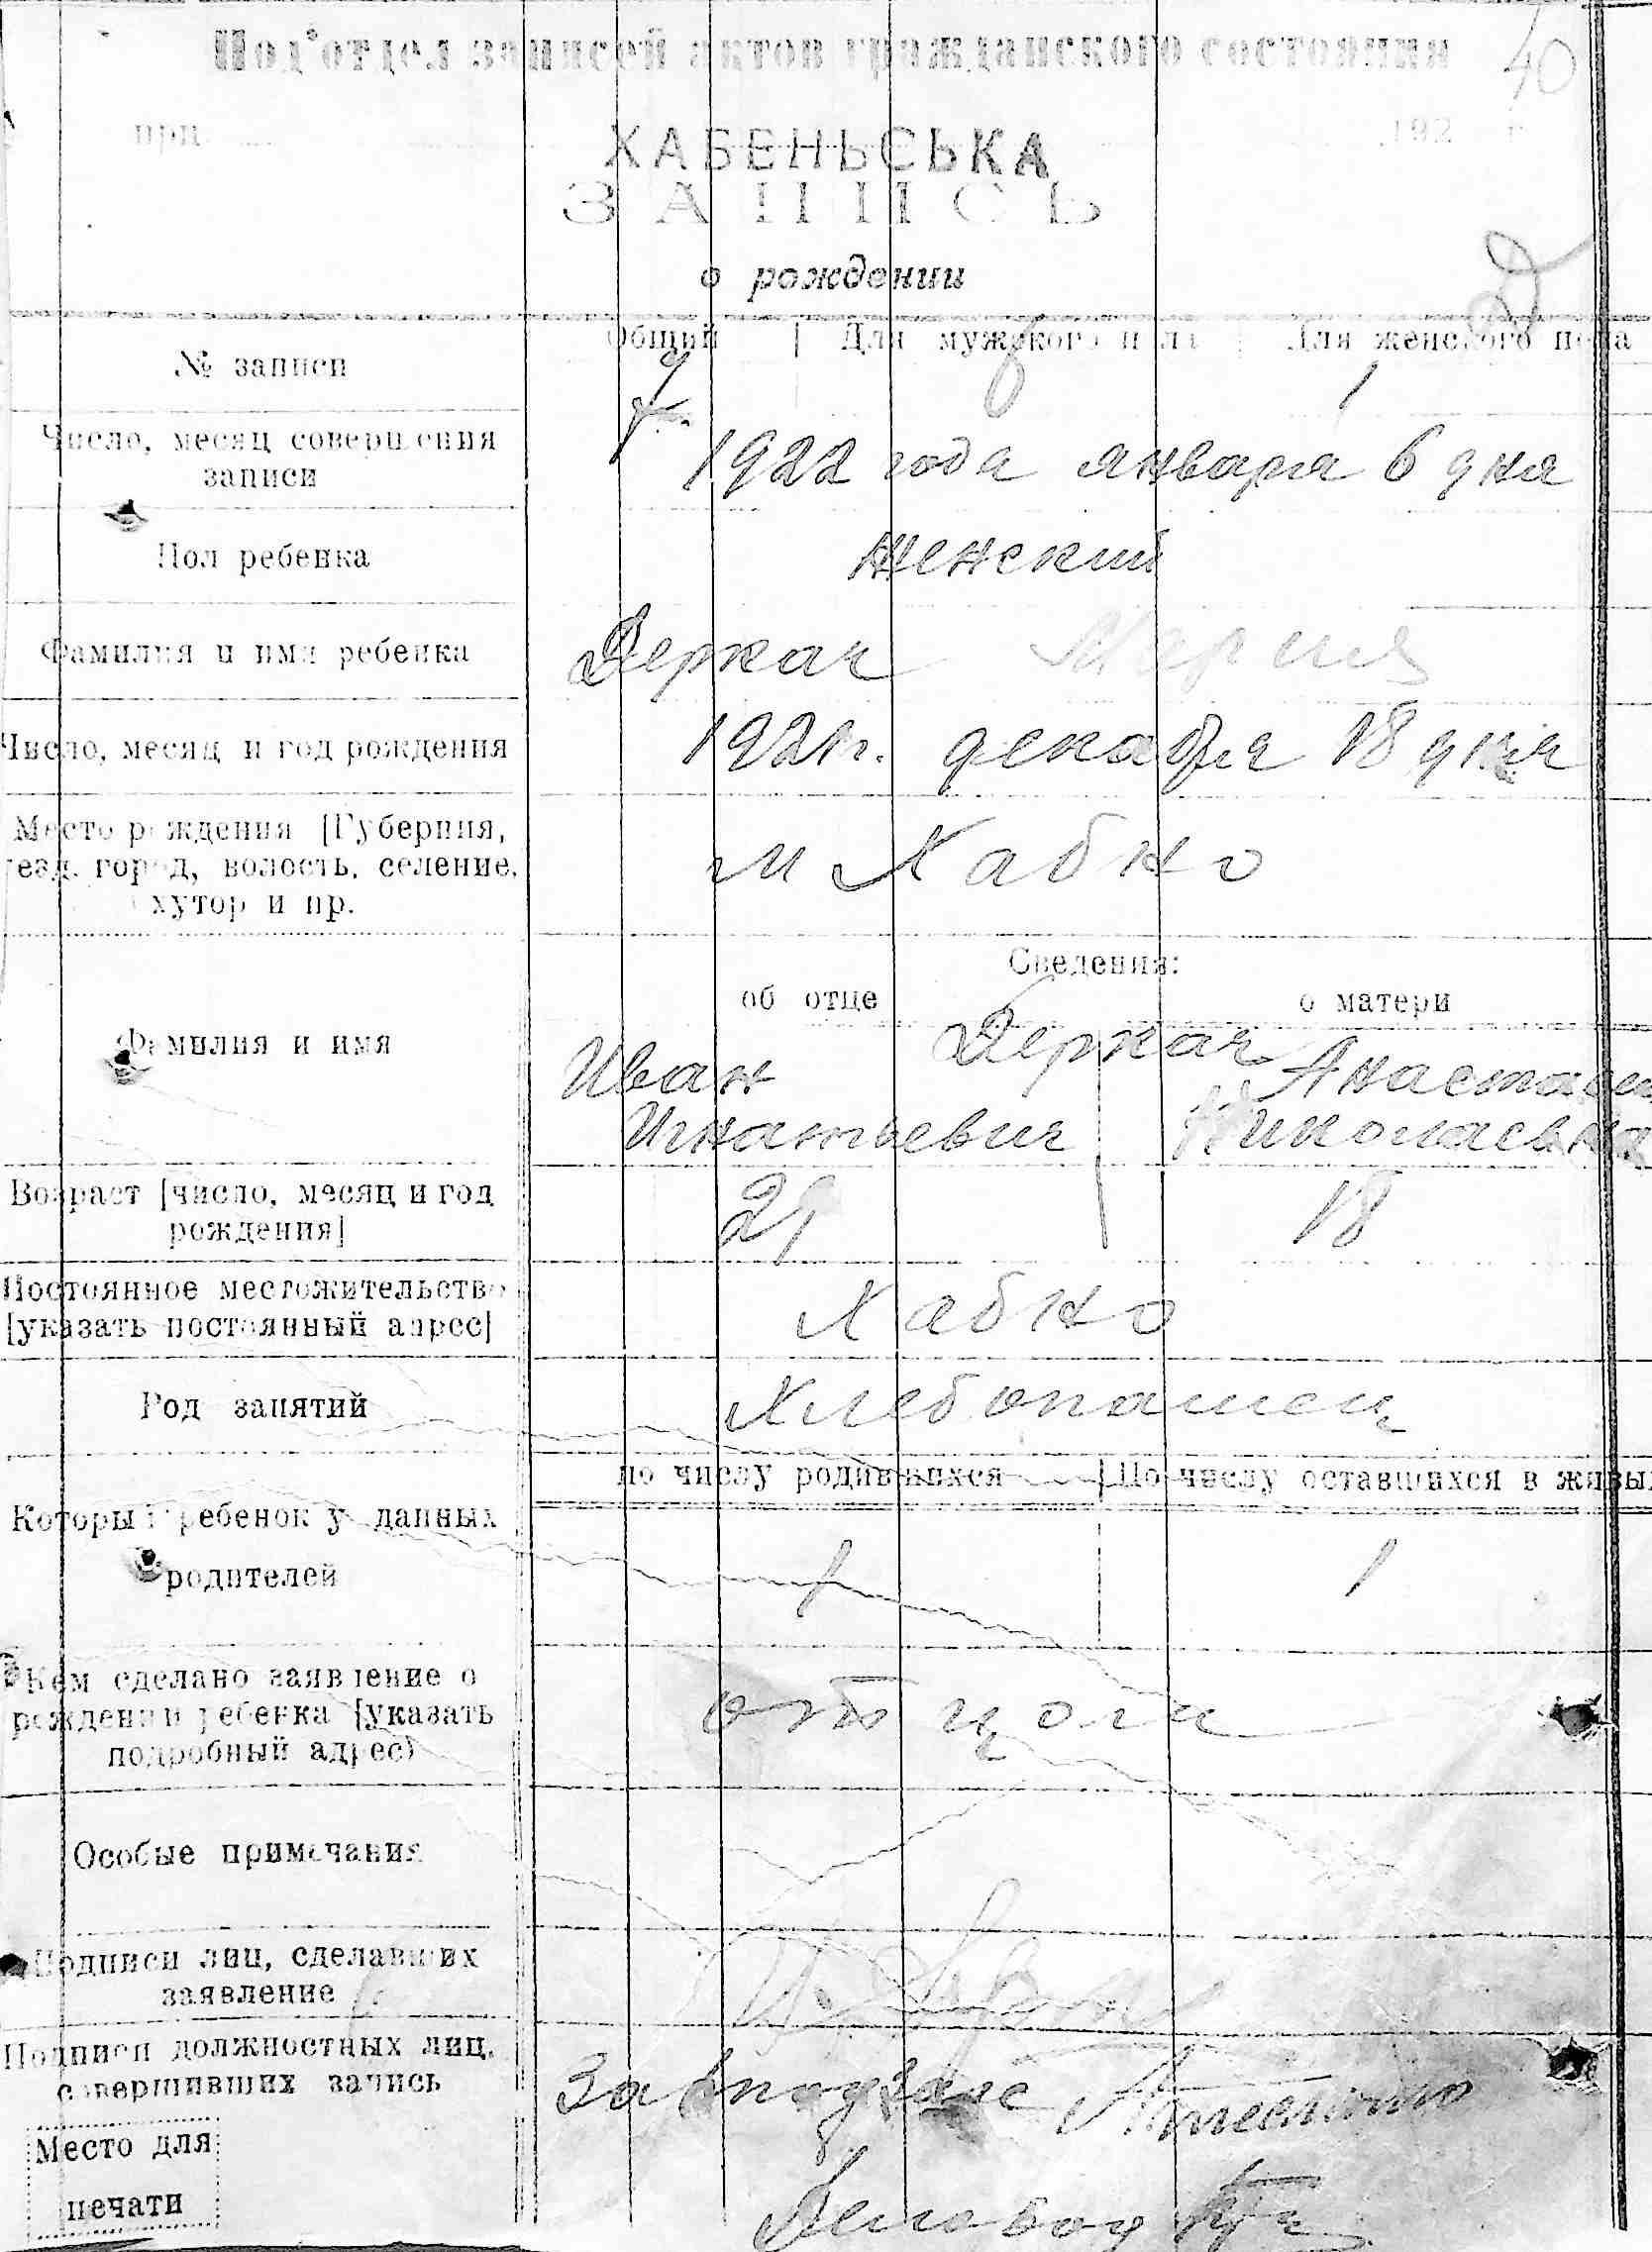 Под'отдел записей актов гражданского состояния
40
при 192 г
ХАБЕНЬСЬКА
ЗАПИСЬ
о рождении
№ записи
Общий | Для мужского пола | Для женского пола
1
Число, месяц совершения
записи
1922 года января 6 дня
Пол ребенка
Женский
Фамилия и имя ребенка
Деркач Мария
Число, месяц и год рождения
1921 г. декабря 18 дня
Место рождения [Губерния,
уезд, город, волость, селение,
хутор и пр.
м Хабно
Сведения:
об отце
о матери
Фамилия и имя
Деркач
Иван
Анастасия
Игнатьевич
Николаевна
Возраст [число, месяц и год
рождения]
21
18
Постоянное местожительство
[указать постоянный адрес]
Хабно
Род занятий
Хлебопашец
по числу родившихся
По числу оставшихся в живых
Который ребенок у данных
родителей
1
1
Кем сделано заявление о
рождении ребенка [указать
подробный адрес)
отцом
Особые примечания
Подписи лиц, сделавших
заявление
Подписи должностных лиц,
совершивших запись
Место для
печати